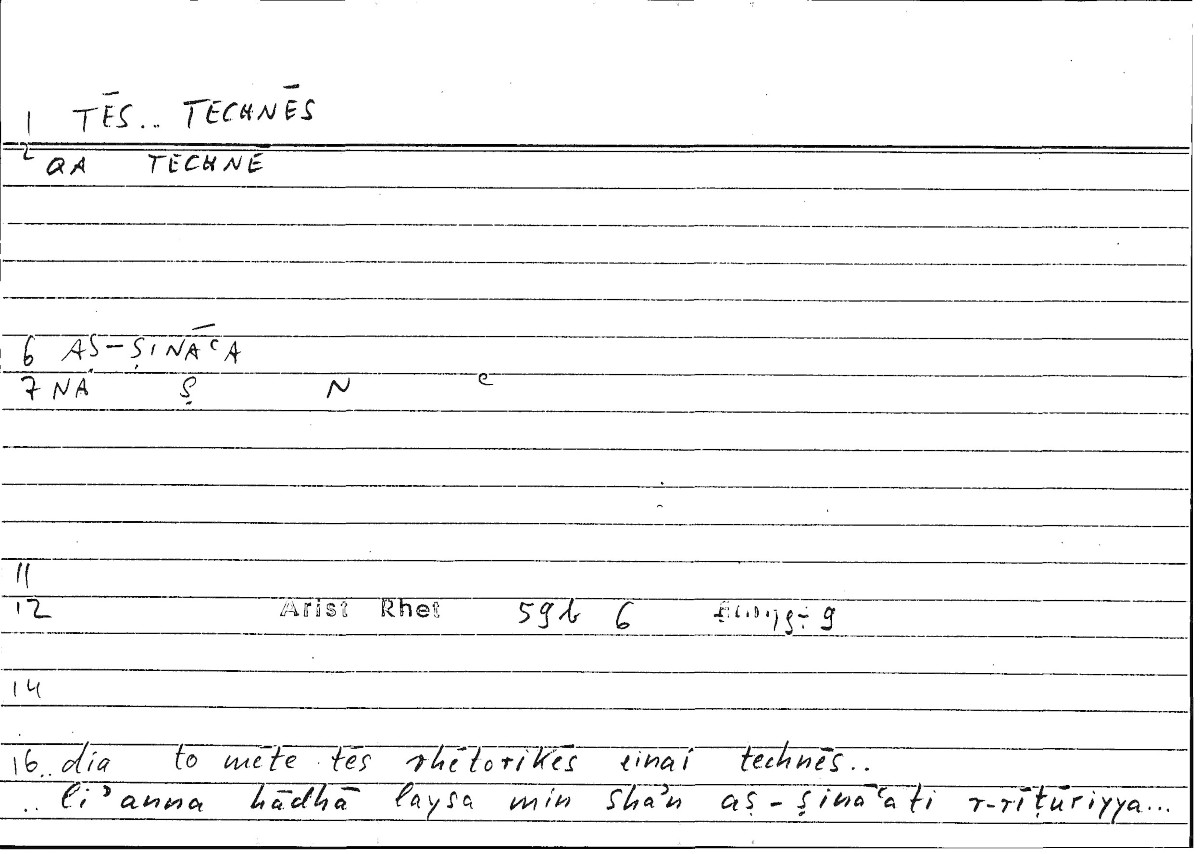 1 TĒS.. TECHNĒS
2 QA TECHNĒ
6 AṢ-ṢINĀʿA
7 NA Ṣ N ʿ
11
12 Arist Rhet 59b 6 9
14
16.. dia to mēte tēs rhētorikēs einai technēs..
.. liʾanna hādhā laysa min shaʾn aṣ-ṣināʿati r-rīṭūriyya...